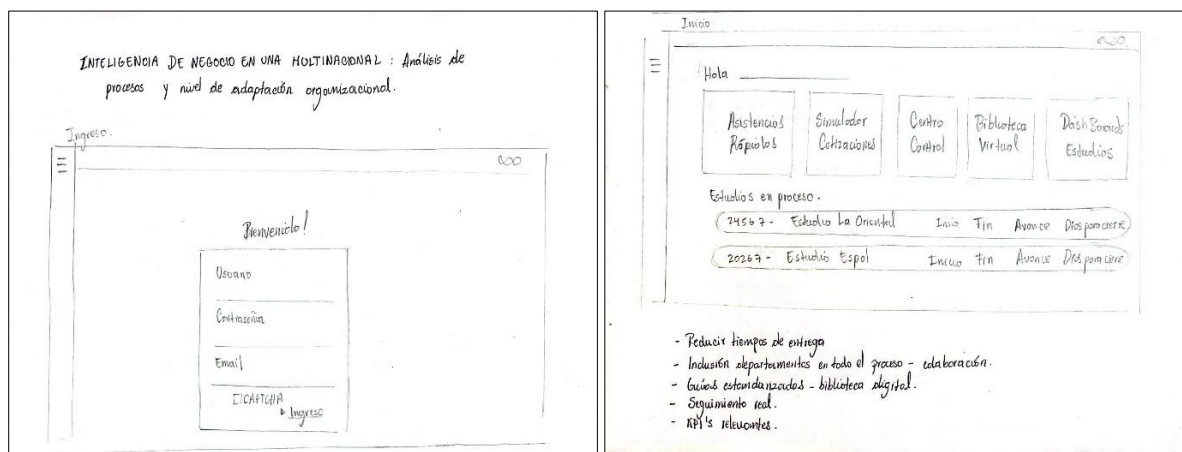 INTELIGENCIA DE NEGOCIO EN UNA MULTINACIONAL : Análisis de
procesos y nivel de adaptación organizacional.
Ingreso.
Bienvenido!
Usuario
Contraseña
Email
CAPTCHA
Ingreso
Inicio
Hola
Asistencias
Rápidas
Simulador
Cotizaciones
Centro
Control
Biblioteca
Virtual
DashBoards
Estudios
Estudios en proceso.
24567 - Estudio La Oriental Inicio Fin Avance Días para cierre
20267 - Estudio Espol Inicio Fin Avance Días para cierre
- Reducir tiempos de entrega
- Inclusión departamentos en todo el proceso - colaboración.
- Guías estandarizadas - biblioteca digital.
- Seguimiento real.
- KPI's relevantes.